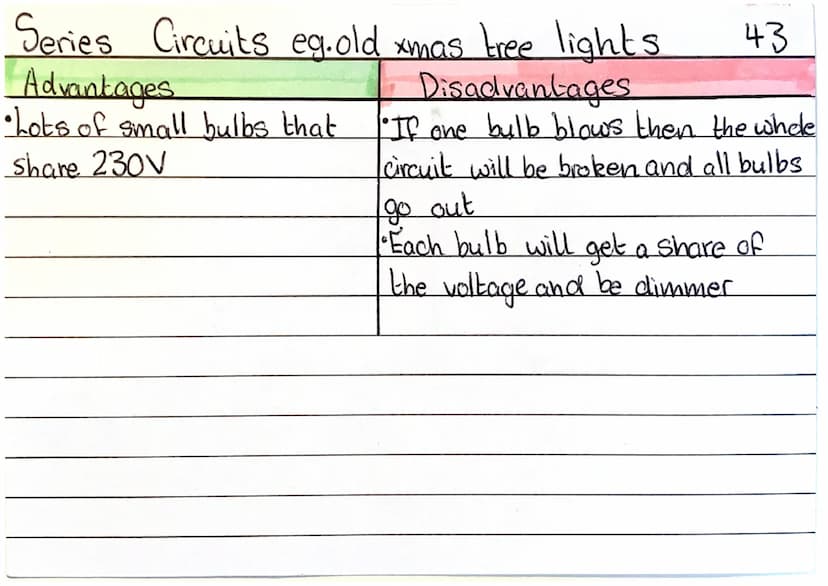 Series Circuits eg. old xmas tree lights 43
Advantages
Disadvantages
•Lots of small bulbs that
share 230V
•If one bulb blows then the whole
circuit will be broken and all bulbs
go out
•Each bulb will get a share of
the voltage and be dimmer